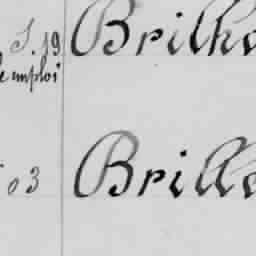 S. 19 Brilh
emploi
03 Brill